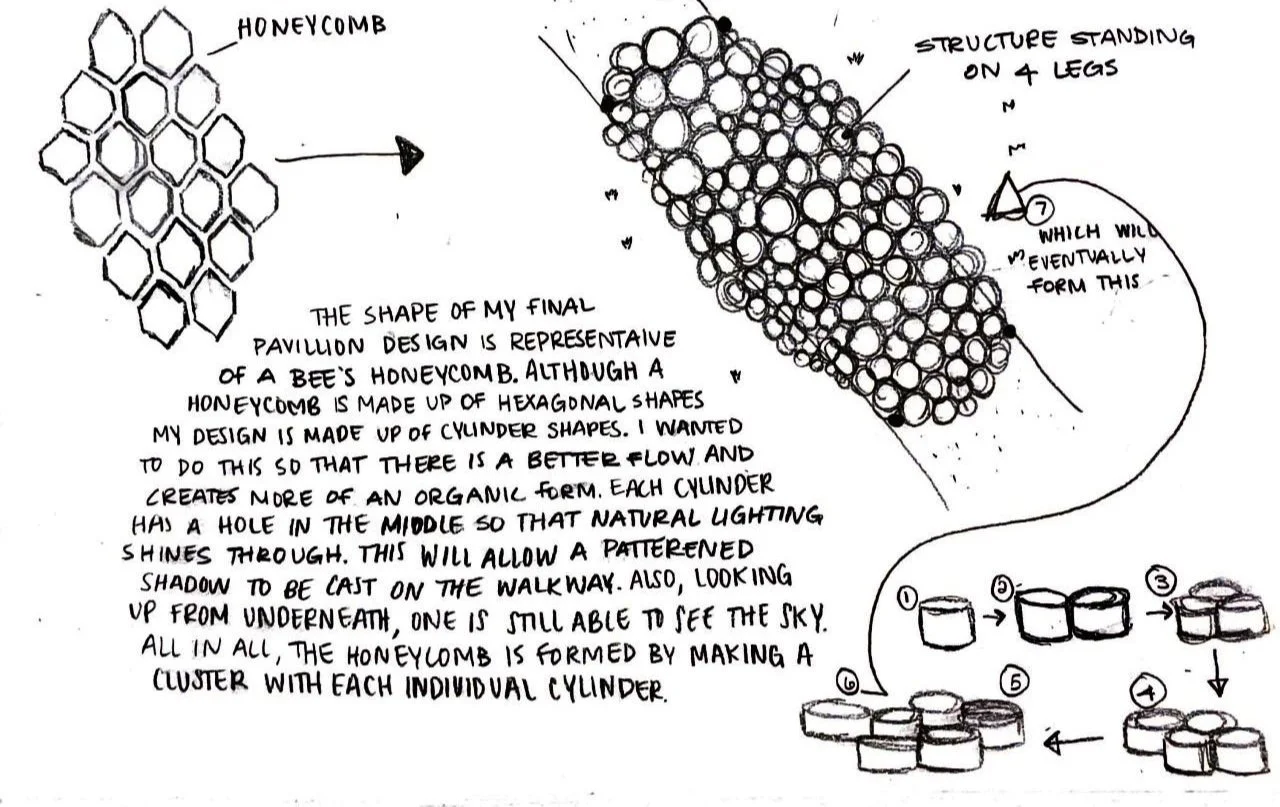 HONEYCOMB
STRUCTURE STANDING
ON 4 LEGS
7
WHICH WILL
EVENTUALLY
FORM THIS
THE SHAPE OF MY FINAL
PAVILLION DESIGN IS REPRESENTAIVE
OF A BEE'S HONEYCOMB. ALTHOUGH A
HONEYCOMB IS MADE UP OF HEXAGONAL SHAPES
MY DESIGN IS MADE UP OF CYLINDER SHAPES. I WANTED
TO DO THIS SO THAT THERE IS A BETTER FLOW AND
CREATES MORE OF AN ORGANIC FORM. EACH CYLINDER
HAS A HOLE IN THE MIDDLE SO THAT NATURAL LIGHTING
SHINES THROUGH. THIS WILL ALLOW A PATTERENED
SHADOW TO BE CAST ON THE WALKWAY. ALSO, LOOKING
UP FROM UNDERNEATH, ONE IS STILL ABLE TO SEE THE SKY.
ALL IN ALL, THE HONEYCOMB IS FORMED BY MAKING A
CLUSTER WITH EACH INDIVIDUAL CYLINDER.
1
2
3
4
5
6